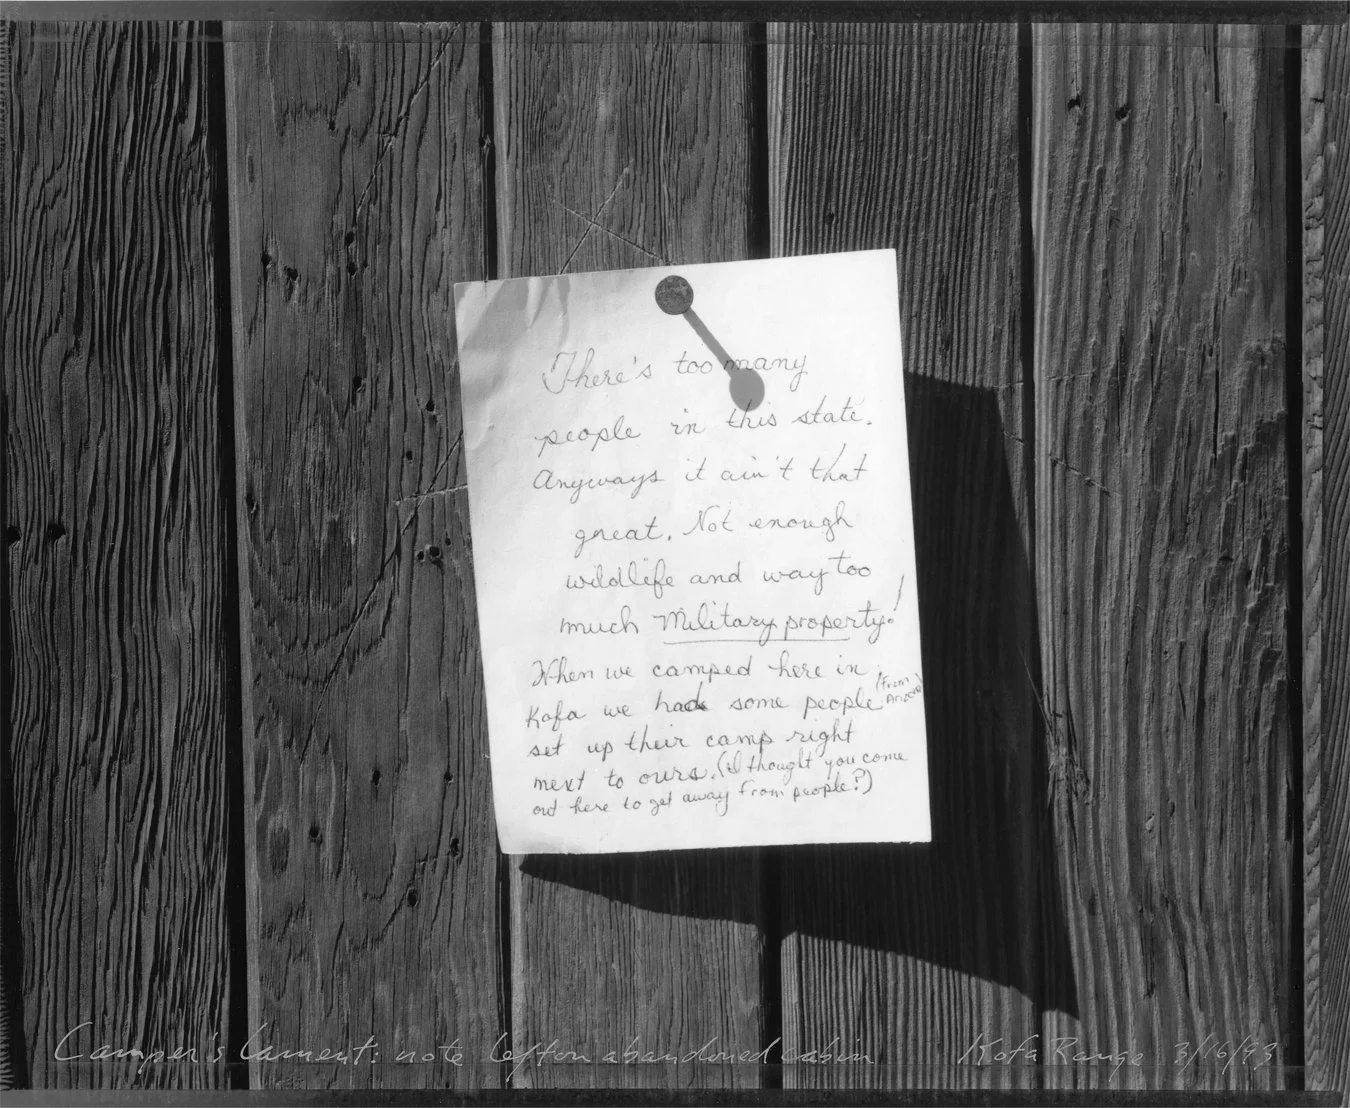 There's too many
people in this state.
Anyways it ain't that
great. Not enough
wildlife and way too
much Military property!
When we camped here in
Kofa we had some people (From
set up their camp right
next to ours. (I thought you come
out here to get away from people?)
Camper's Lament: note left on abandoned cabin Kofa Range 3/16/93